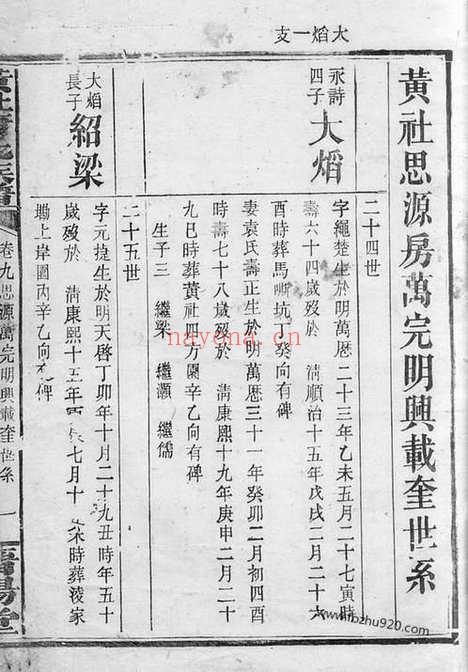 大熖一支
黃社思源房萬完明興載奎世系
二十四世
永詩
四子
大熖
字繩楚生於明萬厯二十三年乙未五月二十七寅時
壽六十四歲歿於 清順治十五年戊戌二月二十六
酉時葬馬嘶坑丁癸向有碑
妻袁氏壽正生於明萬厯三十一年癸卯二月初四酉
時壽七十八歲歿於 清康熙十九年庚申二月二十
九巳時葬黃社四方園辛乙向有碑
生子三 繼梁 繼灝 繼儒
二十五世
大熖
長子
紹梁
字元捷生於明天啓丁卯年十月二十九丑時年五十
歲歿於 清康熙十五年 七月十 未時葬淩家
塴上岸園丙辛乙向有碑
卷九思源萬完明興載奎世系 一
nayona.cn
www.bzhu920.com